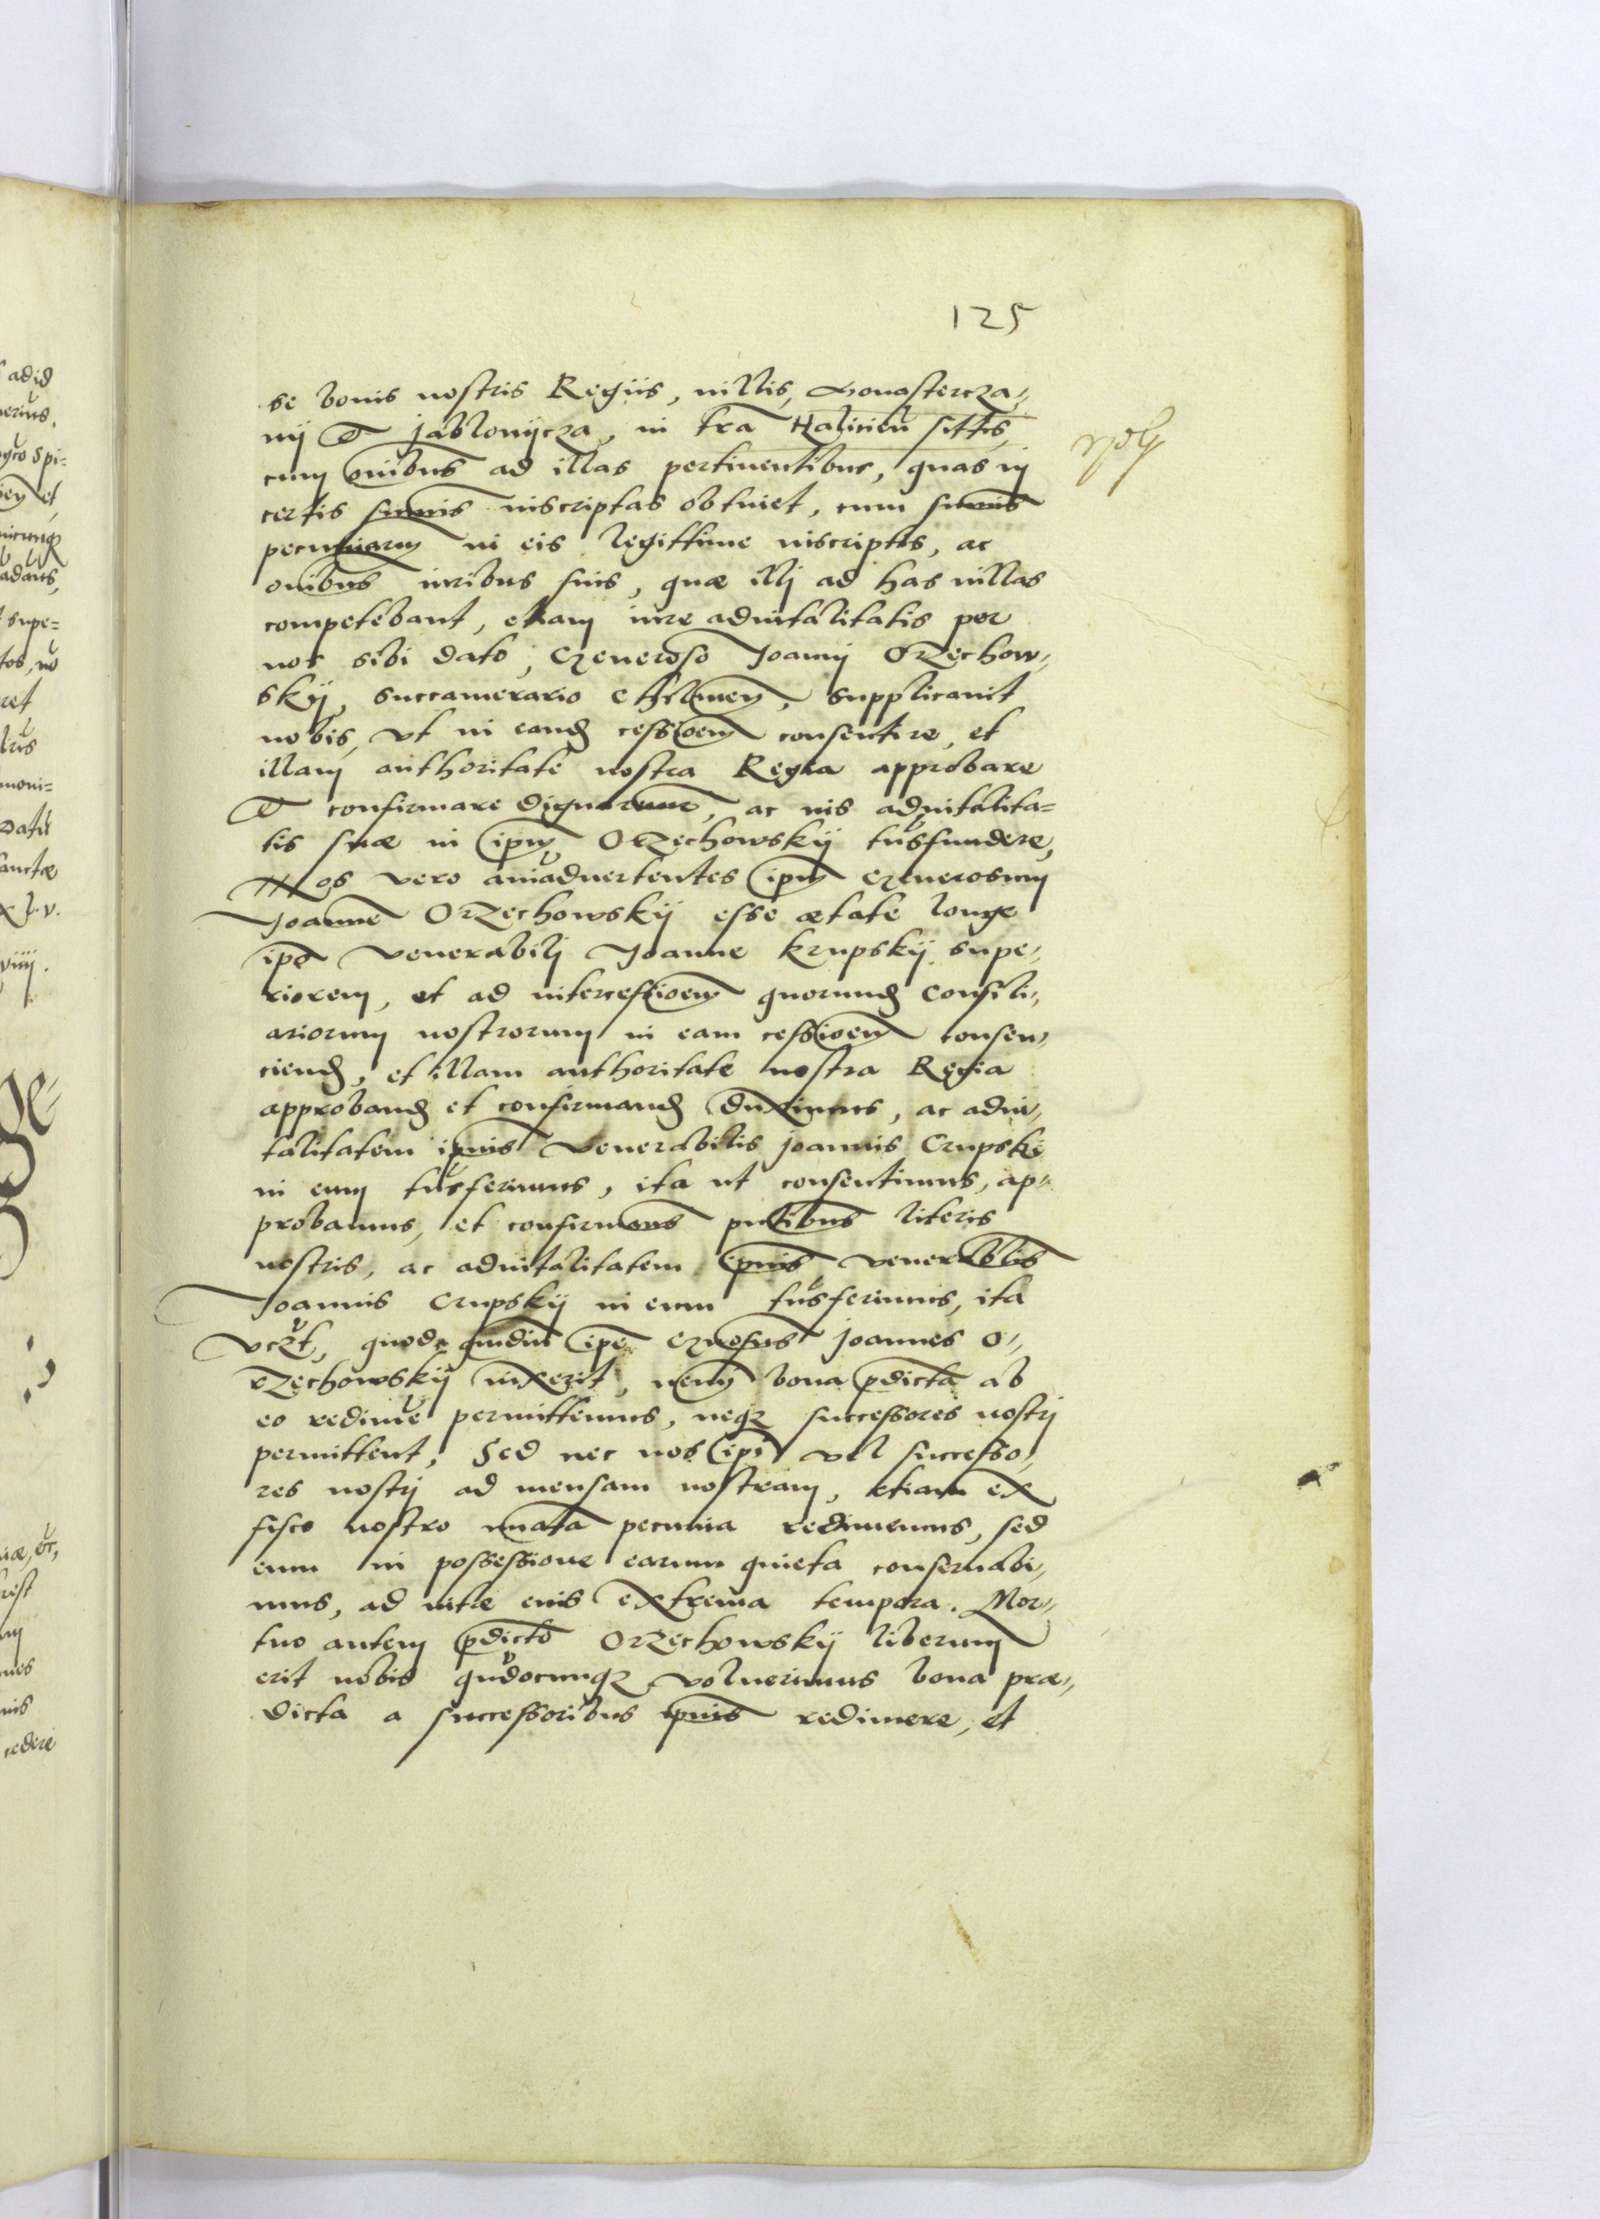 125
se bonis nostris Regiis, villis, Monastercza,,
nij et Jablonijcza, in tra Halicień sittis,
cum oībus ad illas pertinentibus, quas in
certis sumīs inscriptas obtinet, cum sumīs
pecuniarum in eis legittime inscriptis, ac
oībus iuribus suis, quæ illj ad has villas
competebant, etiam iure aduitalitatis per
nos sibi dato, Generoso Joannj Orzechow,,
skij, succamerario Chelmeń, supplicauit
nobis, vt in eand cessioēm consentire, et
illam authoritate nostra Regia approbare
et confirmare dignaremur, ac ius aduitalita=
tis suæ in ipm Orzechowskij trāsfundere,
Nos vero aīaduertentes ipm Generosum
Joannē Orzechowskij esse ætate longe
ipō Venerabilj Joanne Krupskij supe,,
riorem, et ad intercessioēm quorund Consili,,
ariorum nostrorum in eam cessioēm consen,,
ciend, et illam authoritate nostra Regia
approband et confirmand duximus, ac adui,,
talitatem ipius Venerabilis Joannis Crupski
in eum trāsferimus, ita ut consentimus, ap,,
probamus, et confirmams pntibus literis
nostris, ac aduitalitatem ipius Venerablis
Joannis Crupskij in eum trāsferimus, ita
vczt, quod quādiu ipe Gnosus Joannes O,,
rzechowskij vixerit, neminj bona pdicta ab
eo redimē permittemus, neqz successores nostrj
permittent, Sed nec nos ipi vel successo,,
res nostrj ad mensam nostram, etiam ex
fisco nostro nuāta pecunia redimemus, sed
eum in possessione earum quieta conseruabi,,
mus, ad vitæ eius extrema tempora. Mor,,
tuo autem pdicto Orzechowskij liberum
erit nobis quādocunqz voluerimus bona præ,,
dicta a successoribus ipius redimere, et